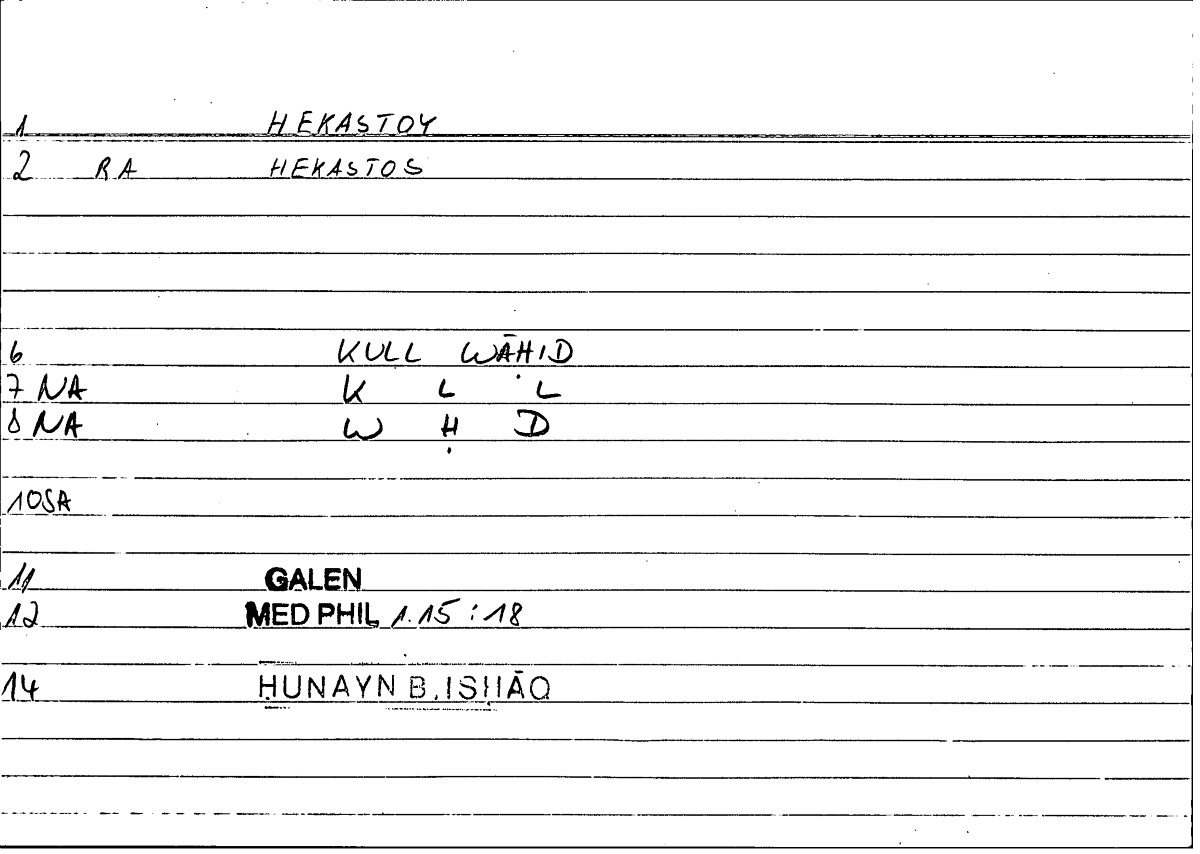 1 HEKASTOY
2 RA HEKASTOS
6 KULL WĀḤID
7 NA K L L
8 NA W Ḥ D
10 SA
11 GALEN
12 MED PHIL 1.15:18
14 ḤUNAYN B. ISḤĀQ